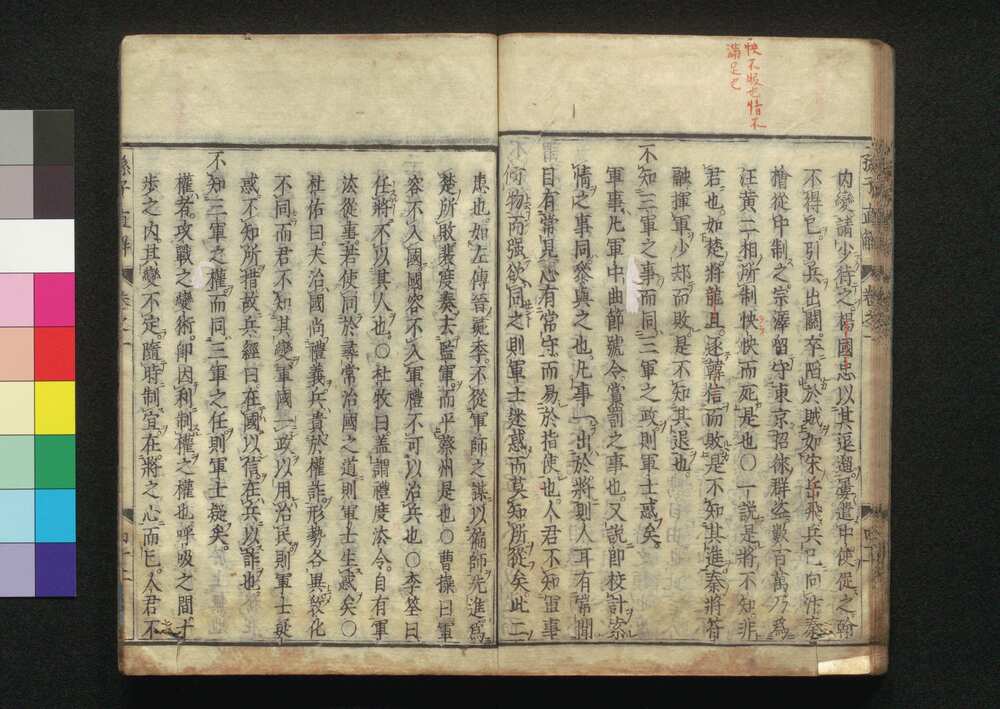 怏不服也情不
滿足也
内變請少待之楊國忠以其逗遛屢遣中使促之翰
不得已引兵出關卒陷於賊如宋岳飛兵已向汴秦
檜從中制之宗澤留守東京招徠群盗數百萬乃爲
汪黄二相所制怏怏而死是也〇一説是將不知非
君也如楚將龍且逐韓信而敗是不知其進秦將苻
融揮軍少却而敗是不知其退也
不知三軍之事而同三軍之政則軍士惑矣
軍事凡軍中曲節號令賞罰之事也又説即校計索
情之事同參與之也凡事一出於將則人耳有常聞
目有常見心有常守而易於指使也人君不知軍事
何物而强欲同之則軍士迷惑而莫知所從矣此二
患也如左傳晉彘季不從軍師之謀以偏師先進爲
楚所敗裴度奏去監軍而平蔡州是也〇曹操曰軍
容不入國國容不入軍禮不可以治兵也〇李筌曰
任將不以其人也〇杜牧曰蓋謂禮度法令自有軍
法從事若使同於尋常治國之道則軍士生惑矣〇
杜佑曰夫治國尚禮義兵貴於權詐形勢各異敎化
不同而君不知其變軍國一政以用治民則軍士疑
惑不知所措故兵經曰在國以信在兵以詐也
不知三軍之權而同三軍之任則軍士疑矣
權者攻戰之變術即因利制權之權也呼吸之間寸
步之内其變不定隨時制宜在將之心而已人君不
孫子直解